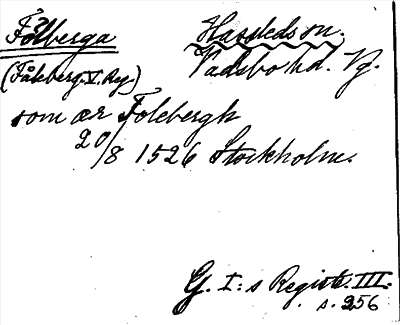 Fålberga Hassleds sn.
(Fåleberg. V. Reg.) Vadsbo hd. Vg.
som ær Folebergh
20/8 1526 Stockholm.
G. I:s Registr. III.
s. 256